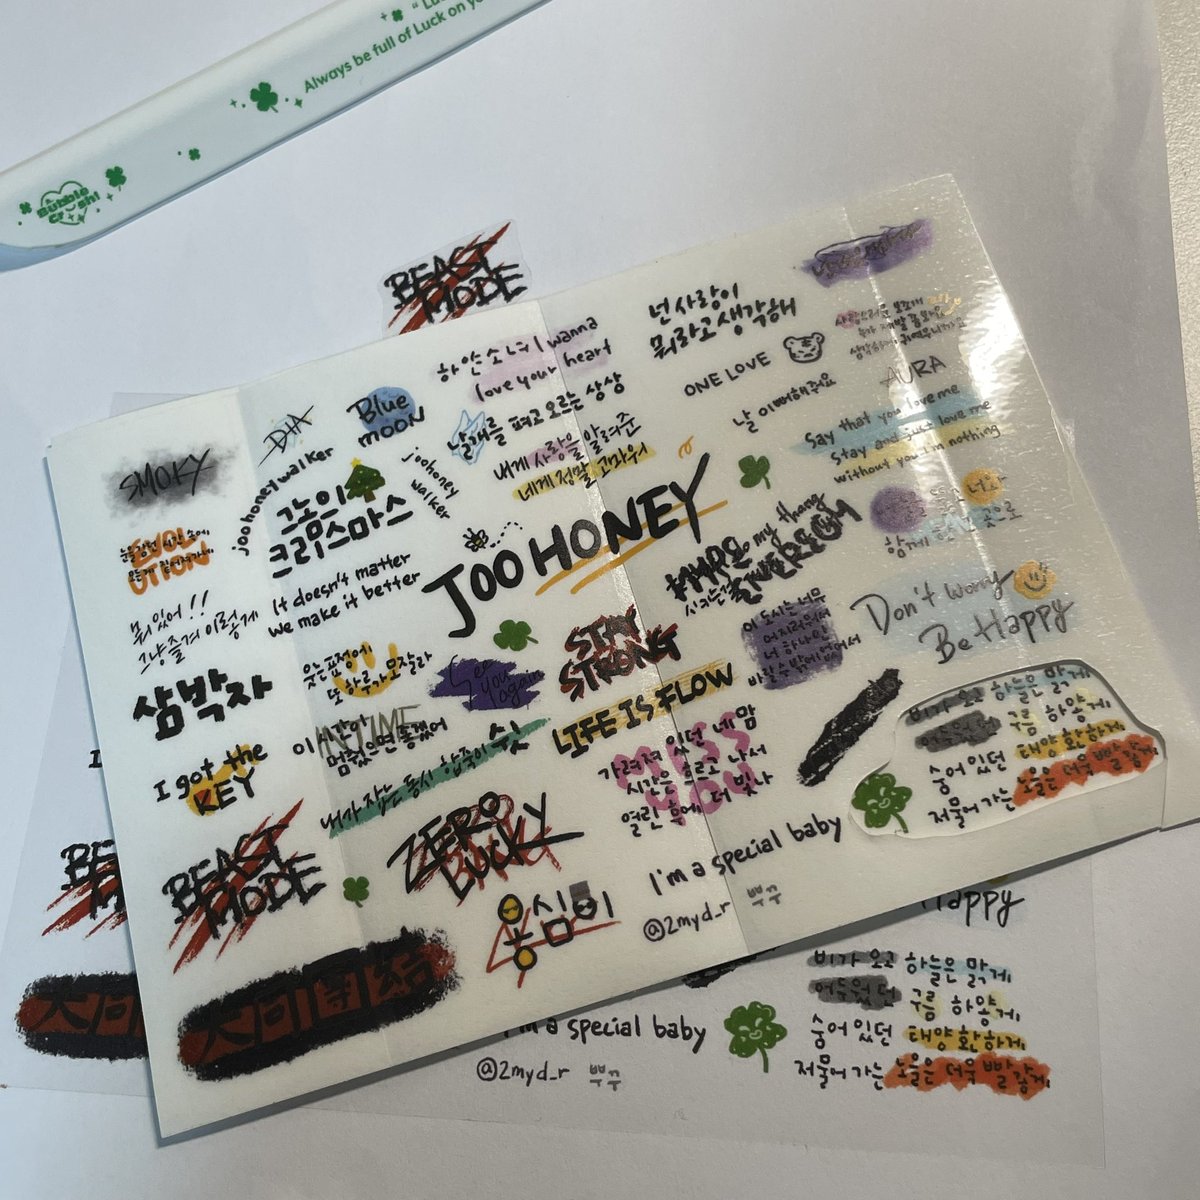 Always be full of Luck on
Bubble
Crush!
BEAST
MODE
넌 사랑이
뭐라고 생각해
하얀소녀 I wanna
love your heart
ONE LOVE
AURA
날 이뻐해줘요
Say that you love me
Stay and just love me
without you i'm nothing
Blue
moon
날개를 펴고 오르는 상상
내게 사랑을 알려준
네게 정말 고마워
SMOKY
joohoneywalker
joohoney
walker
그놈의
크리스마스
JOOHONEY
It doesn't matter
we make it better
EVOL
UTION
뭐 있어!!
그냥 즐겨 이렇게
my thang
함께
곳으로
Don't worry
Be Happy
이 도시는 너무
어지러워서
너 하나만
바랄 수밖에 없어서
STAY
STRONG
LIFE IS FLOW
웃는 표정에
또 하루가 모잘라
See
you
again
삼박자
I got the
KEY
이 시간이
멈췄으면 좋겠어
IN TIME
내가 잡는 동시 합죽이 숙
가려져 있던 네 맘
시간은 흐르고 나서
열린 후에 더 빛나
MISS
YOU
비가 오고 하늘은 맑게
어두웠던 구름 하얗게
숨어있던 태양 환하게
저물어 가는 노을은 더욱 빨갛게
BEAST
MODE
ZERO
LUCKY
I'm a special baby
@2myd_r 쀼쀼
옹심이
BEAST
Happy
비가 오고 하늘은 맑게
어두웠던 구름 하얗게
숨어있던 태양 환하게
저물어 가는 노을은 더욱 빨갛게
I'm a special baby
@2myd_r 쀼쀼